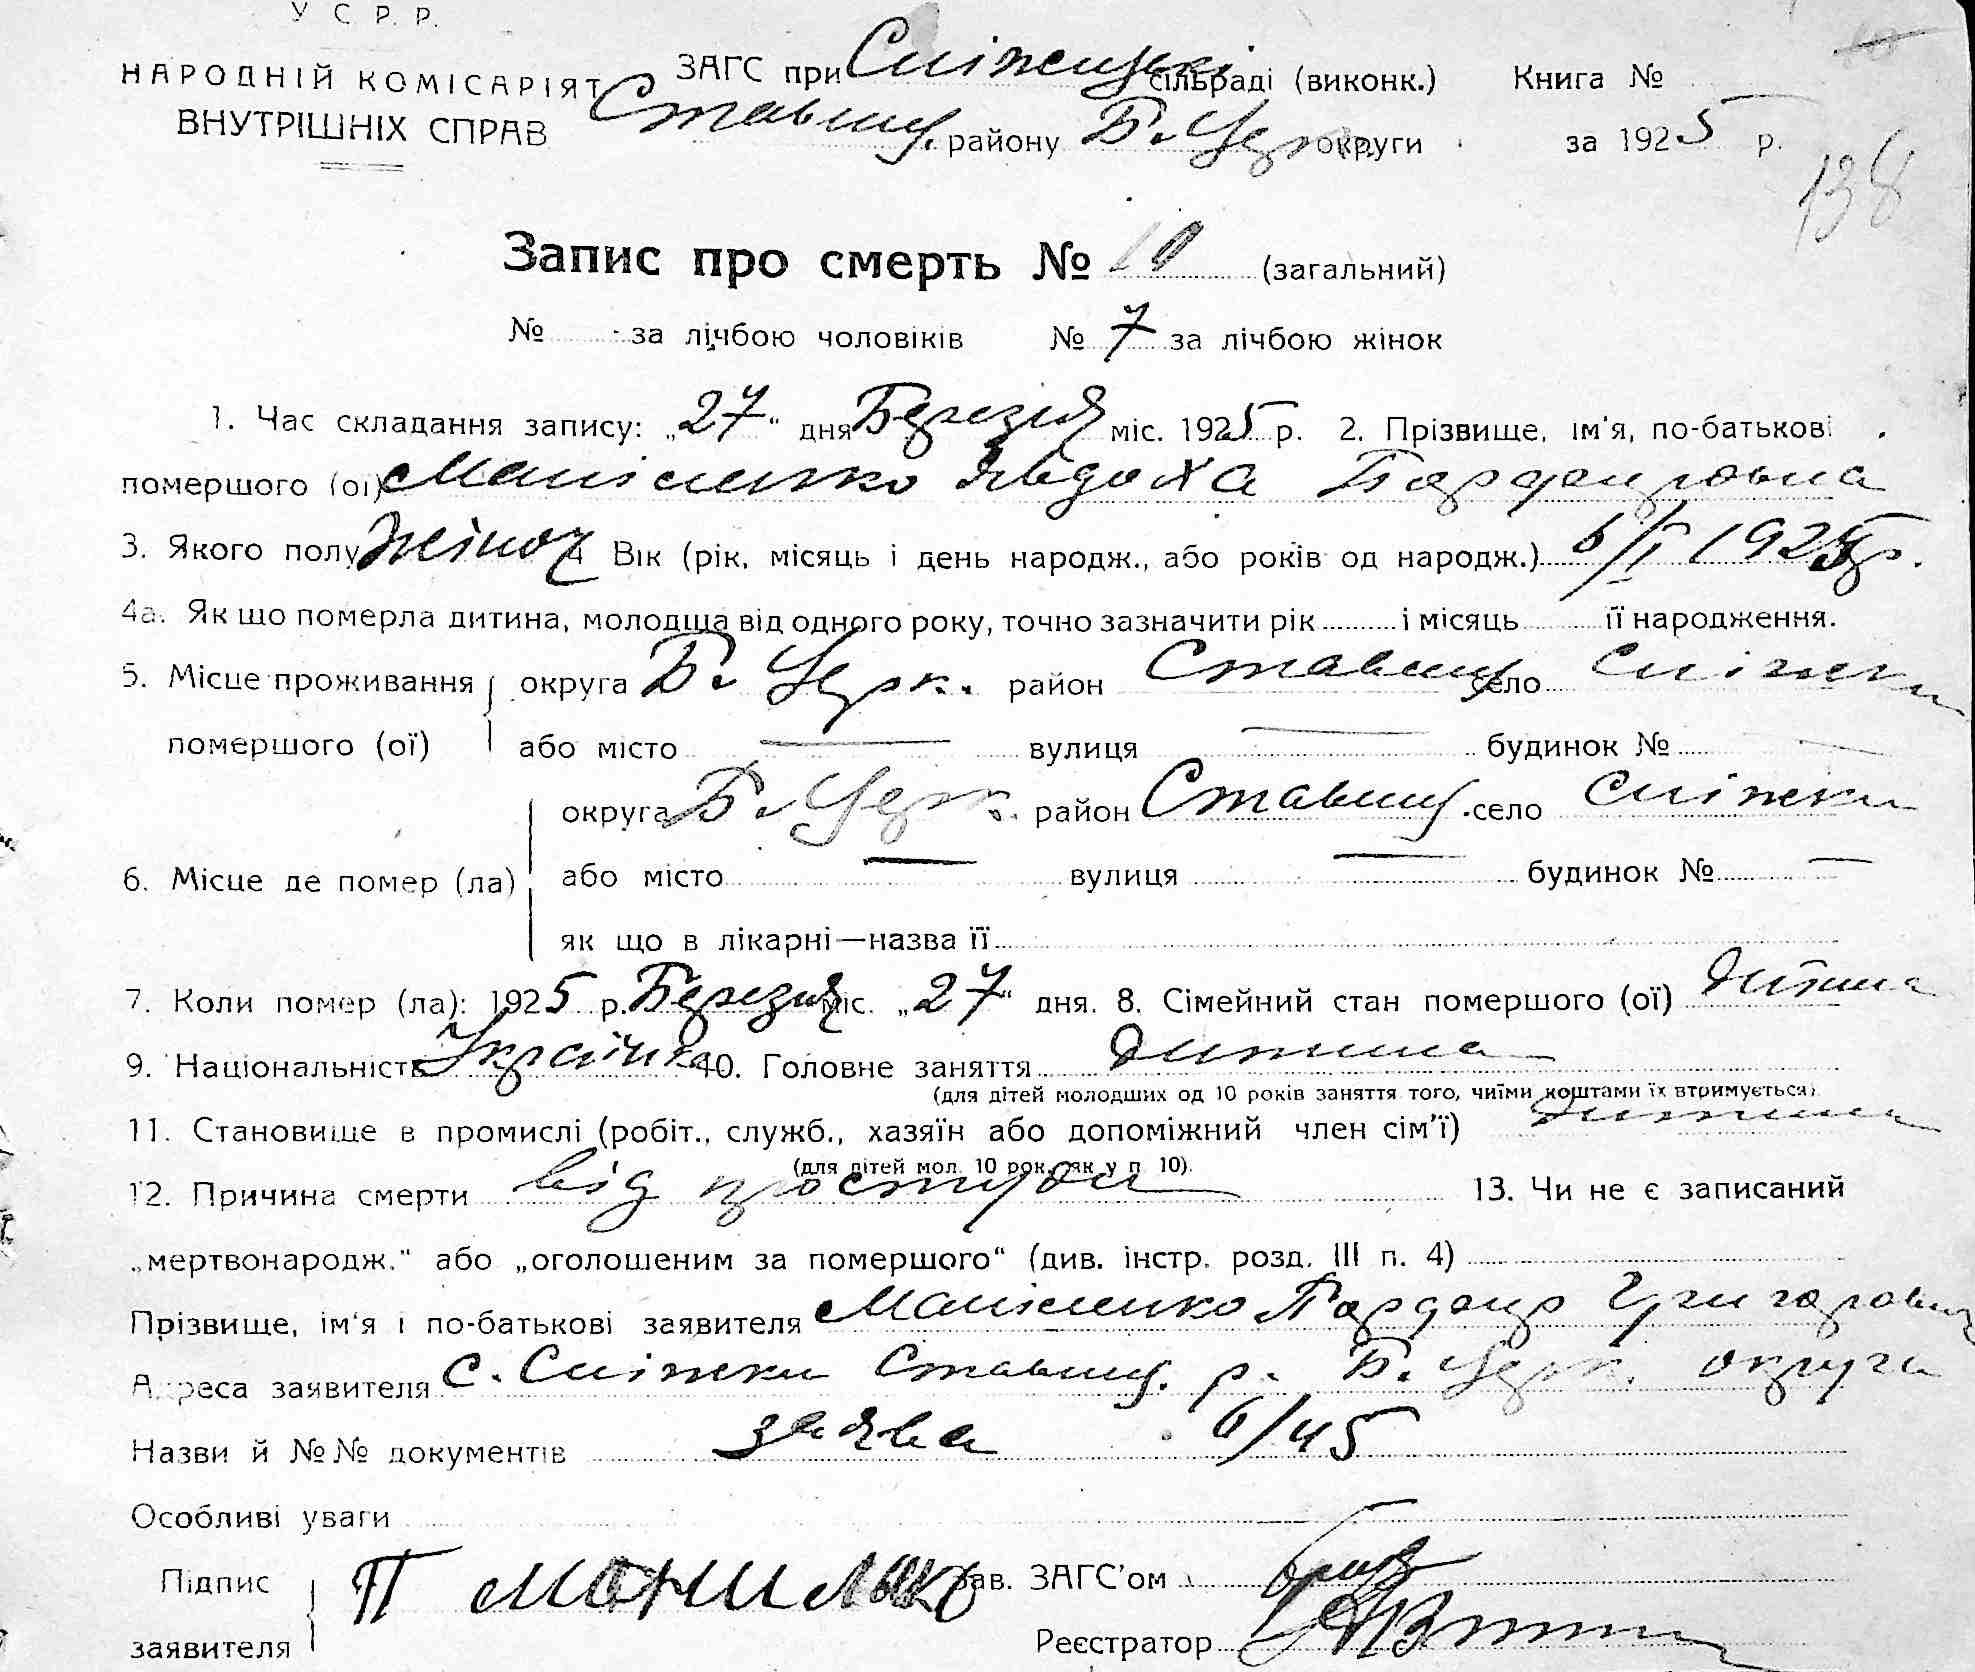 У С Р. Р.
НАРОДНІЙ КОМІСАРІЯТ ЗАГС при Сніжецькі сільраді (виконк.) Книга №
ВНУТРІШНІХ СПРАВ Ставищ. району Б. Церк. округи за 1925 р.
138
Запис про смерть № 10 (загальний)
№ за лічбою чоловіків № 7 за лічбою жінок
1. Час складання запису: „27" дня Березня міс. 1925 р. 2. Прізвище, ім'я, по-батькові
помершого (ої) Маніленко Явдоха Парфенровна
3. Якого полу жіноч 4 Вік (рік, місяць і день народж., або років од народж.) 6/I 1925 р.
4а. Як що померла дитина, молодша від одного року, точно зазначити рік і місяць її народження.
5. Місце проживання округа Б. Церк. район Ставищ село Сніжки
помершого (ої) або місто — вулиця — будинок № —
округа Б. Церк. район Ставищ. село Сніжки
6. Місце де помер (ла) або місто — вулиця — будинок № —
як що в лікарні—назва її
7. Коли помер (ла): 1925 р. Березня міс. „27" дня. 8. Сімейний стан помершого (ої) дитина
9. Національність Українка 10. Головне заняття дитина
(для дітей молодших од 10 років заняття того, чиїми коштами їх втримується)
11. Становище в промислі (робіт., служб., хазяїн або допоміжний член сім'ї) дитина
(для дітей мол. 10 рок. як у п. 10).
12. Причина смерти від простуди 13. Чи не є записаний
„мертвонародж." або „оголошеним за помершого" (див. інстр. розд. III п. 4)
Прізвище, ім'я і по-батькові заявителя Маніленко Григорович
Адреса заявителя с. Сніжки Ставищ. р. Б. Церк. округи
Назви й №№ документів заява 6/45
Особливі уваги
Підпис П Зав. ЗАГС'ом
заявителя Реєстратор